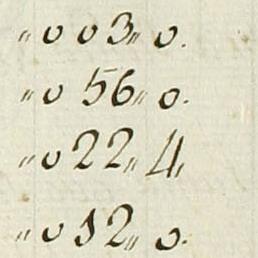 „ 0 0 3„ 0.
„ 0 56„ 0.
„ 0 22„ 4„
„ 0 12„ 0.